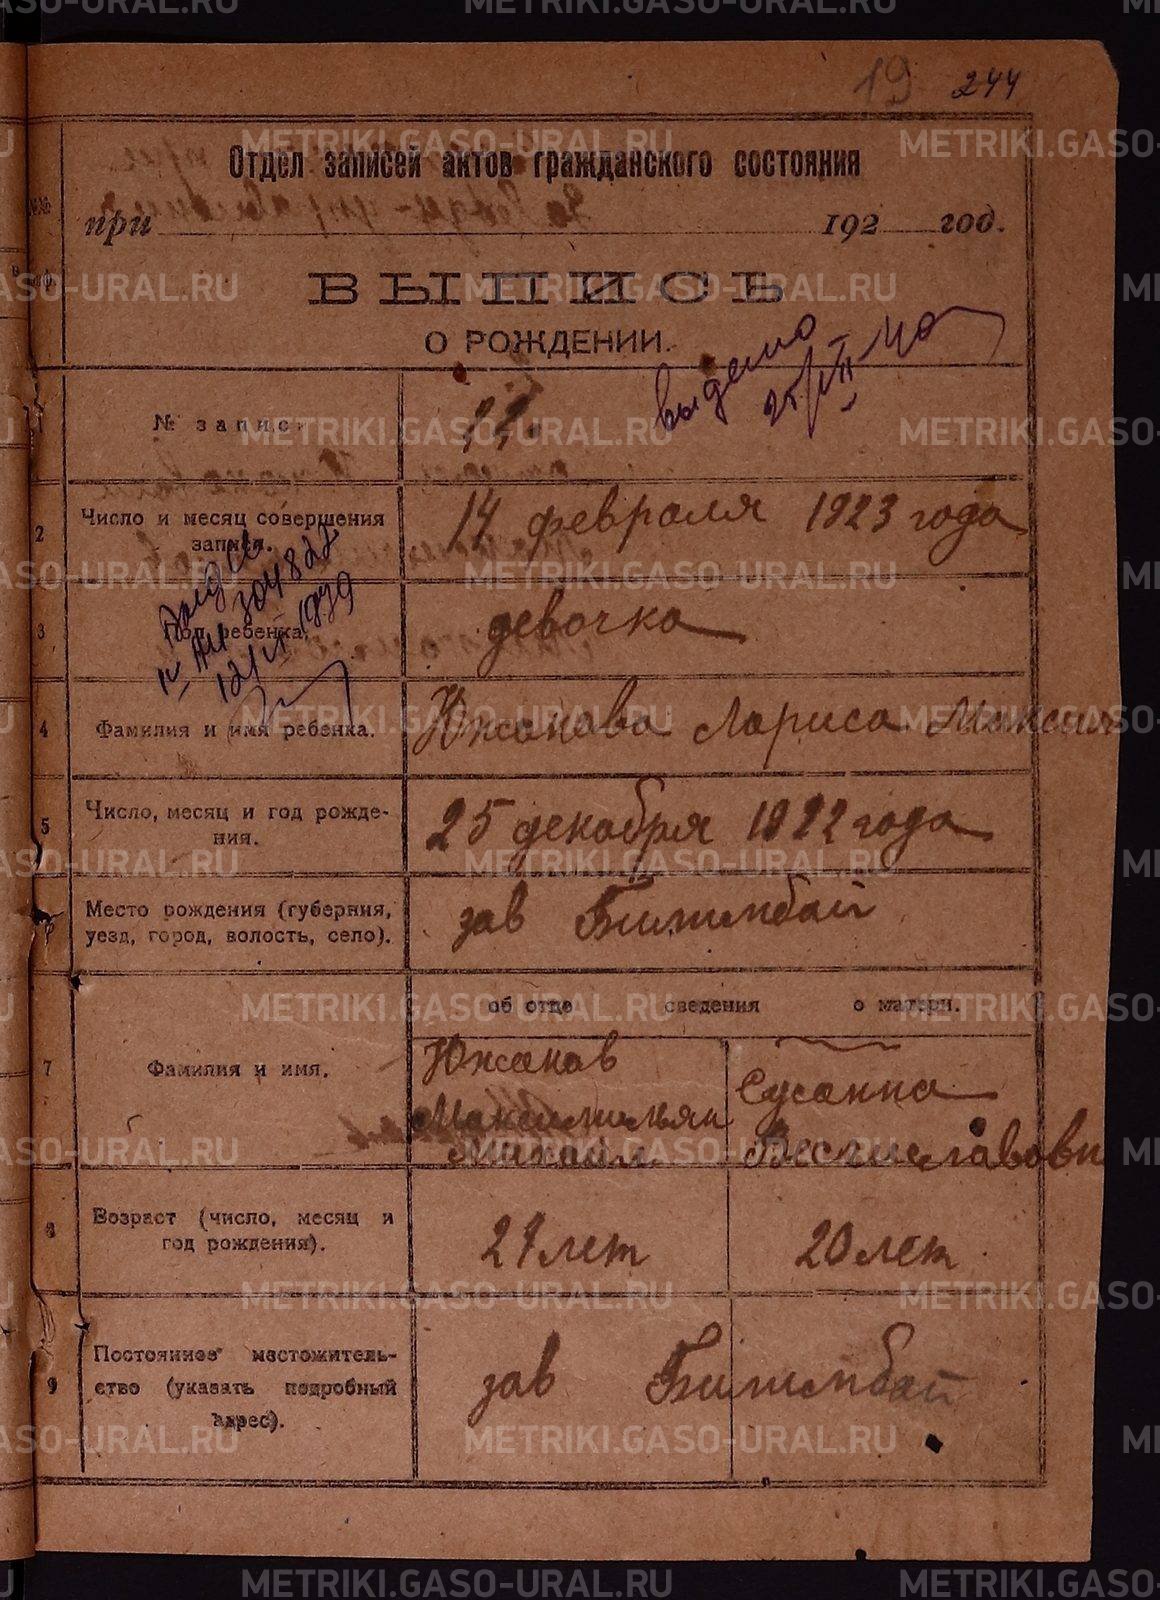 19 244
Отдел записей актов гражданского состояния
при 192 год.
ВЫПИСЬ
О РОЖДЕНИИ.
выдано
25/VII 40
1 № записи 22.
2 Число и месяц совершения
записи.
14 февраля 1923 года
304822
1939
3 Пол ребенка.
девочка
4 Фамилия и имя ребенка.
Южакова Лариса Максим
5 Число, месяц и год рожде-
ния.
25 декабря 1922 года
6 Место рождения (губерния,
уезд, город, волость, село).
зав Билимбай
об отце сведения о матери.
7 Фамилия и имя.
Южаков
Максимильян
Михайл
Сусанна
Весчиславовн
8 Возраст (число, месяц и
год рождения).
21 лет 20 лет
9 Постоянное местожитель-
ство (указать подробный
адрес).
зав Билимбай
METRIKI.GASO-URAL.RU